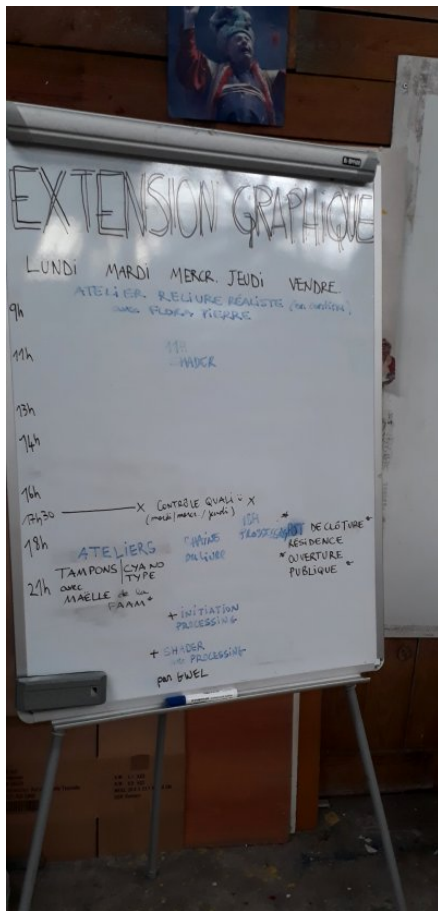 EXTENSION GRAPHIQUE
LUNDI MARDI MERCR. JEUDI VENDRE.
ATELIER RELIURE RÉALISTE (en continu)
avec FLORA PIERRE
9h
11h 11H
SHADER
13h
14h
16h
17h30 X CONTRÔLE QUALI X
(mardi/mercr/jeudi)
18h
ATELIERS
TAMPONS/CYANO
TYPE
avec
MAËLLE de la
FAAM*
21h
CHAÎNE
DU LIVRE
15H
* DE CLÔTURE *
RÉSIDENCE
* OUVERTURE
PUBLIQUE *
+ INITIATION
PROCESSING
+ SHADER
PROCESSING
par GWEL